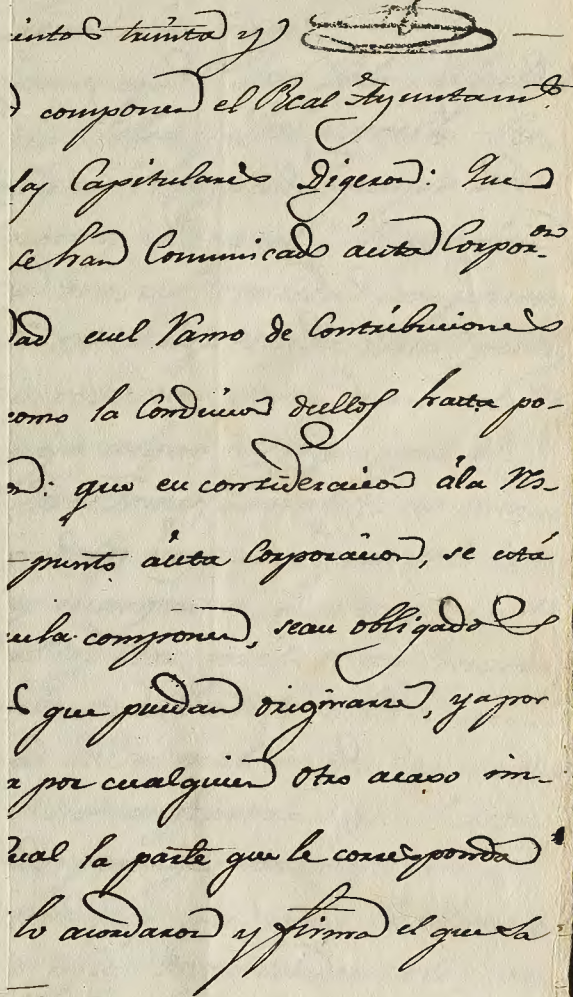 cientos treinta y
componen el Real Ayuntam.to
las Capitulares Digeron: Que
se han Comunicado áesta Corpor.on
dad enel Ramo de Contribuciones
como la Condicion dellos hasta po-
n: que en consideracion ála Rs-
punto áesta Corporacion, se está
quela componen, sean obligados
s que puedan originarse, ya por
a por cualquier otro acaso im-
cual la parte que le corresponda
lo acordaron y firma el que sa